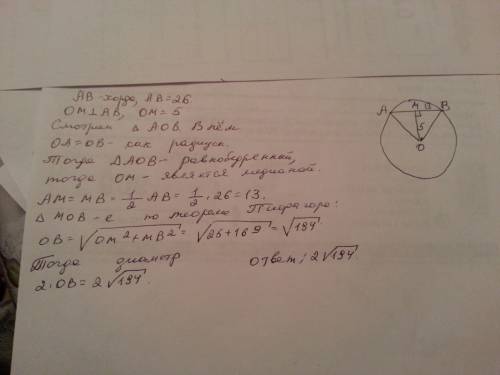 AB - хорда, AB = 26.
OM ⊥ AB, OM = 5
Смотрим △ AOB. В нём
OA = OB - как радиусы.
Тогда △AOB - равнобедренный,
тогда OM - является медианой.
AM = MB = 1/2 AB = 1/2 · 26 = 13.
△ MOB - е по теореме Пифагора:
OB = √(OM² + MB²) = √(25 + 169) = √194
Тогда диаметр
2 · OB = 2√194.
Ответ: 2√194
A M B
5
O